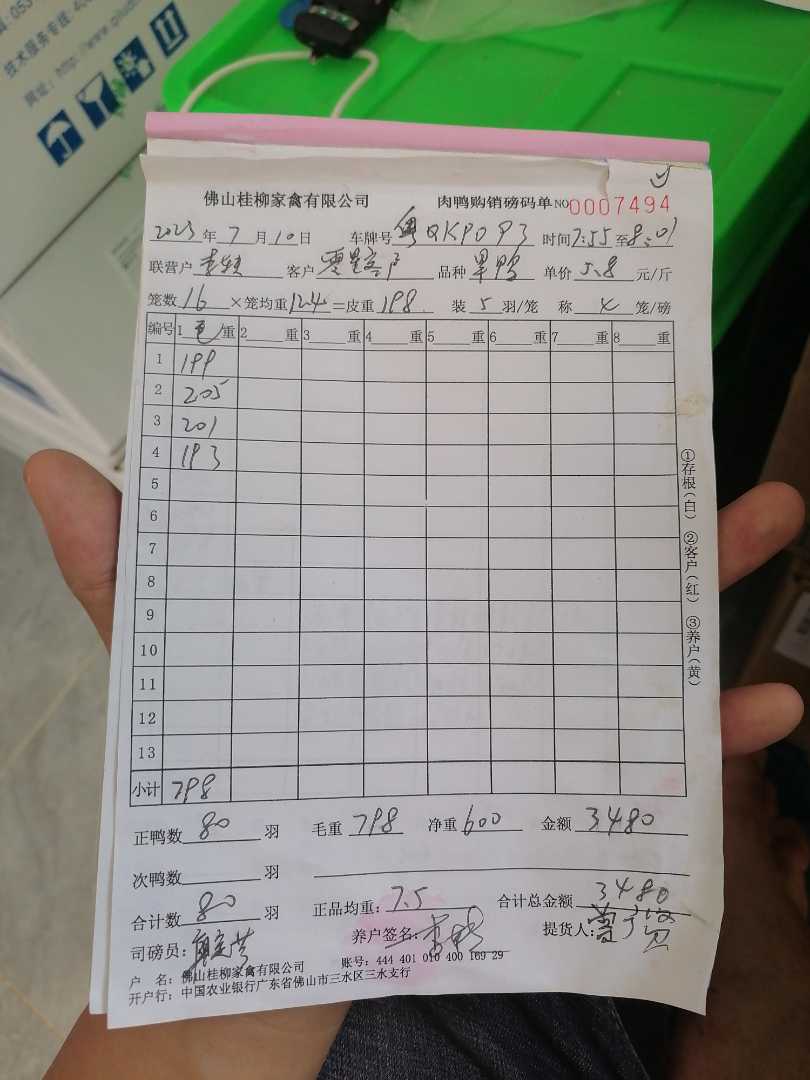 技术服务专线:40
网址: http://www.qilu
佛山桂柳家禽有限公司 肉鸭购销磅码单 NO 0007494
2023年7月10日 车牌号 粤QKP0P3 时间7:55至8:01
联营户 客户 零星客户 品种 单价5.8元/斤
笼数16×笼均重12.4=皮重198 装5羽/笼 称4笼/磅
编号 1毛/重 2重 3重 4重 5重 6重 7重 8重
1 199
2 205
3 201
4 193
5
6
7
8
9
10
11
12
13
小计 798
①存根(白) ②客户(红) ③养户(黄)
正鸭数80羽 毛重798 净重600 金额3480
次鸭数羽
合计数80羽 正品均重:7.5 合计总金额3480
司磅员: 养户签名: 提货人:
户 名:佛山桂柳家禽有限公司 账号:444 401 010 400 169 29
开户行:中国农业银行广东省佛山市三水区三水支行